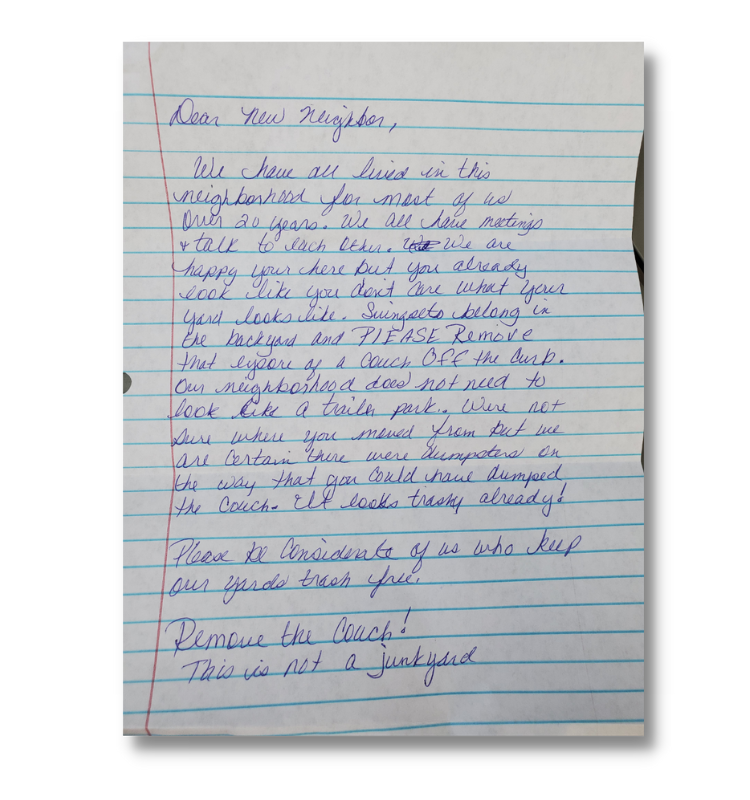 Dear new neighbor,
We have all lived in this
neighborhood for most of us
Over 20 years. We all have meetings
+ talk to each other. We are
happy your here but you already
look like you don't care what your
yard looks like. Swingsets belong in
the backyard and PLEASE Remove
that eysore of a Couch Off the Curb.
Our neighborhood does not need to
look like a trailer park. Were not
sure where you moved from but we
are certain there were dumpsters on
the way that you could have dumped
the Couch. It looks trashy already!
Please be Considerate of us who keep
our yards trash free.
Remove the Couch!
This is not a junkyard